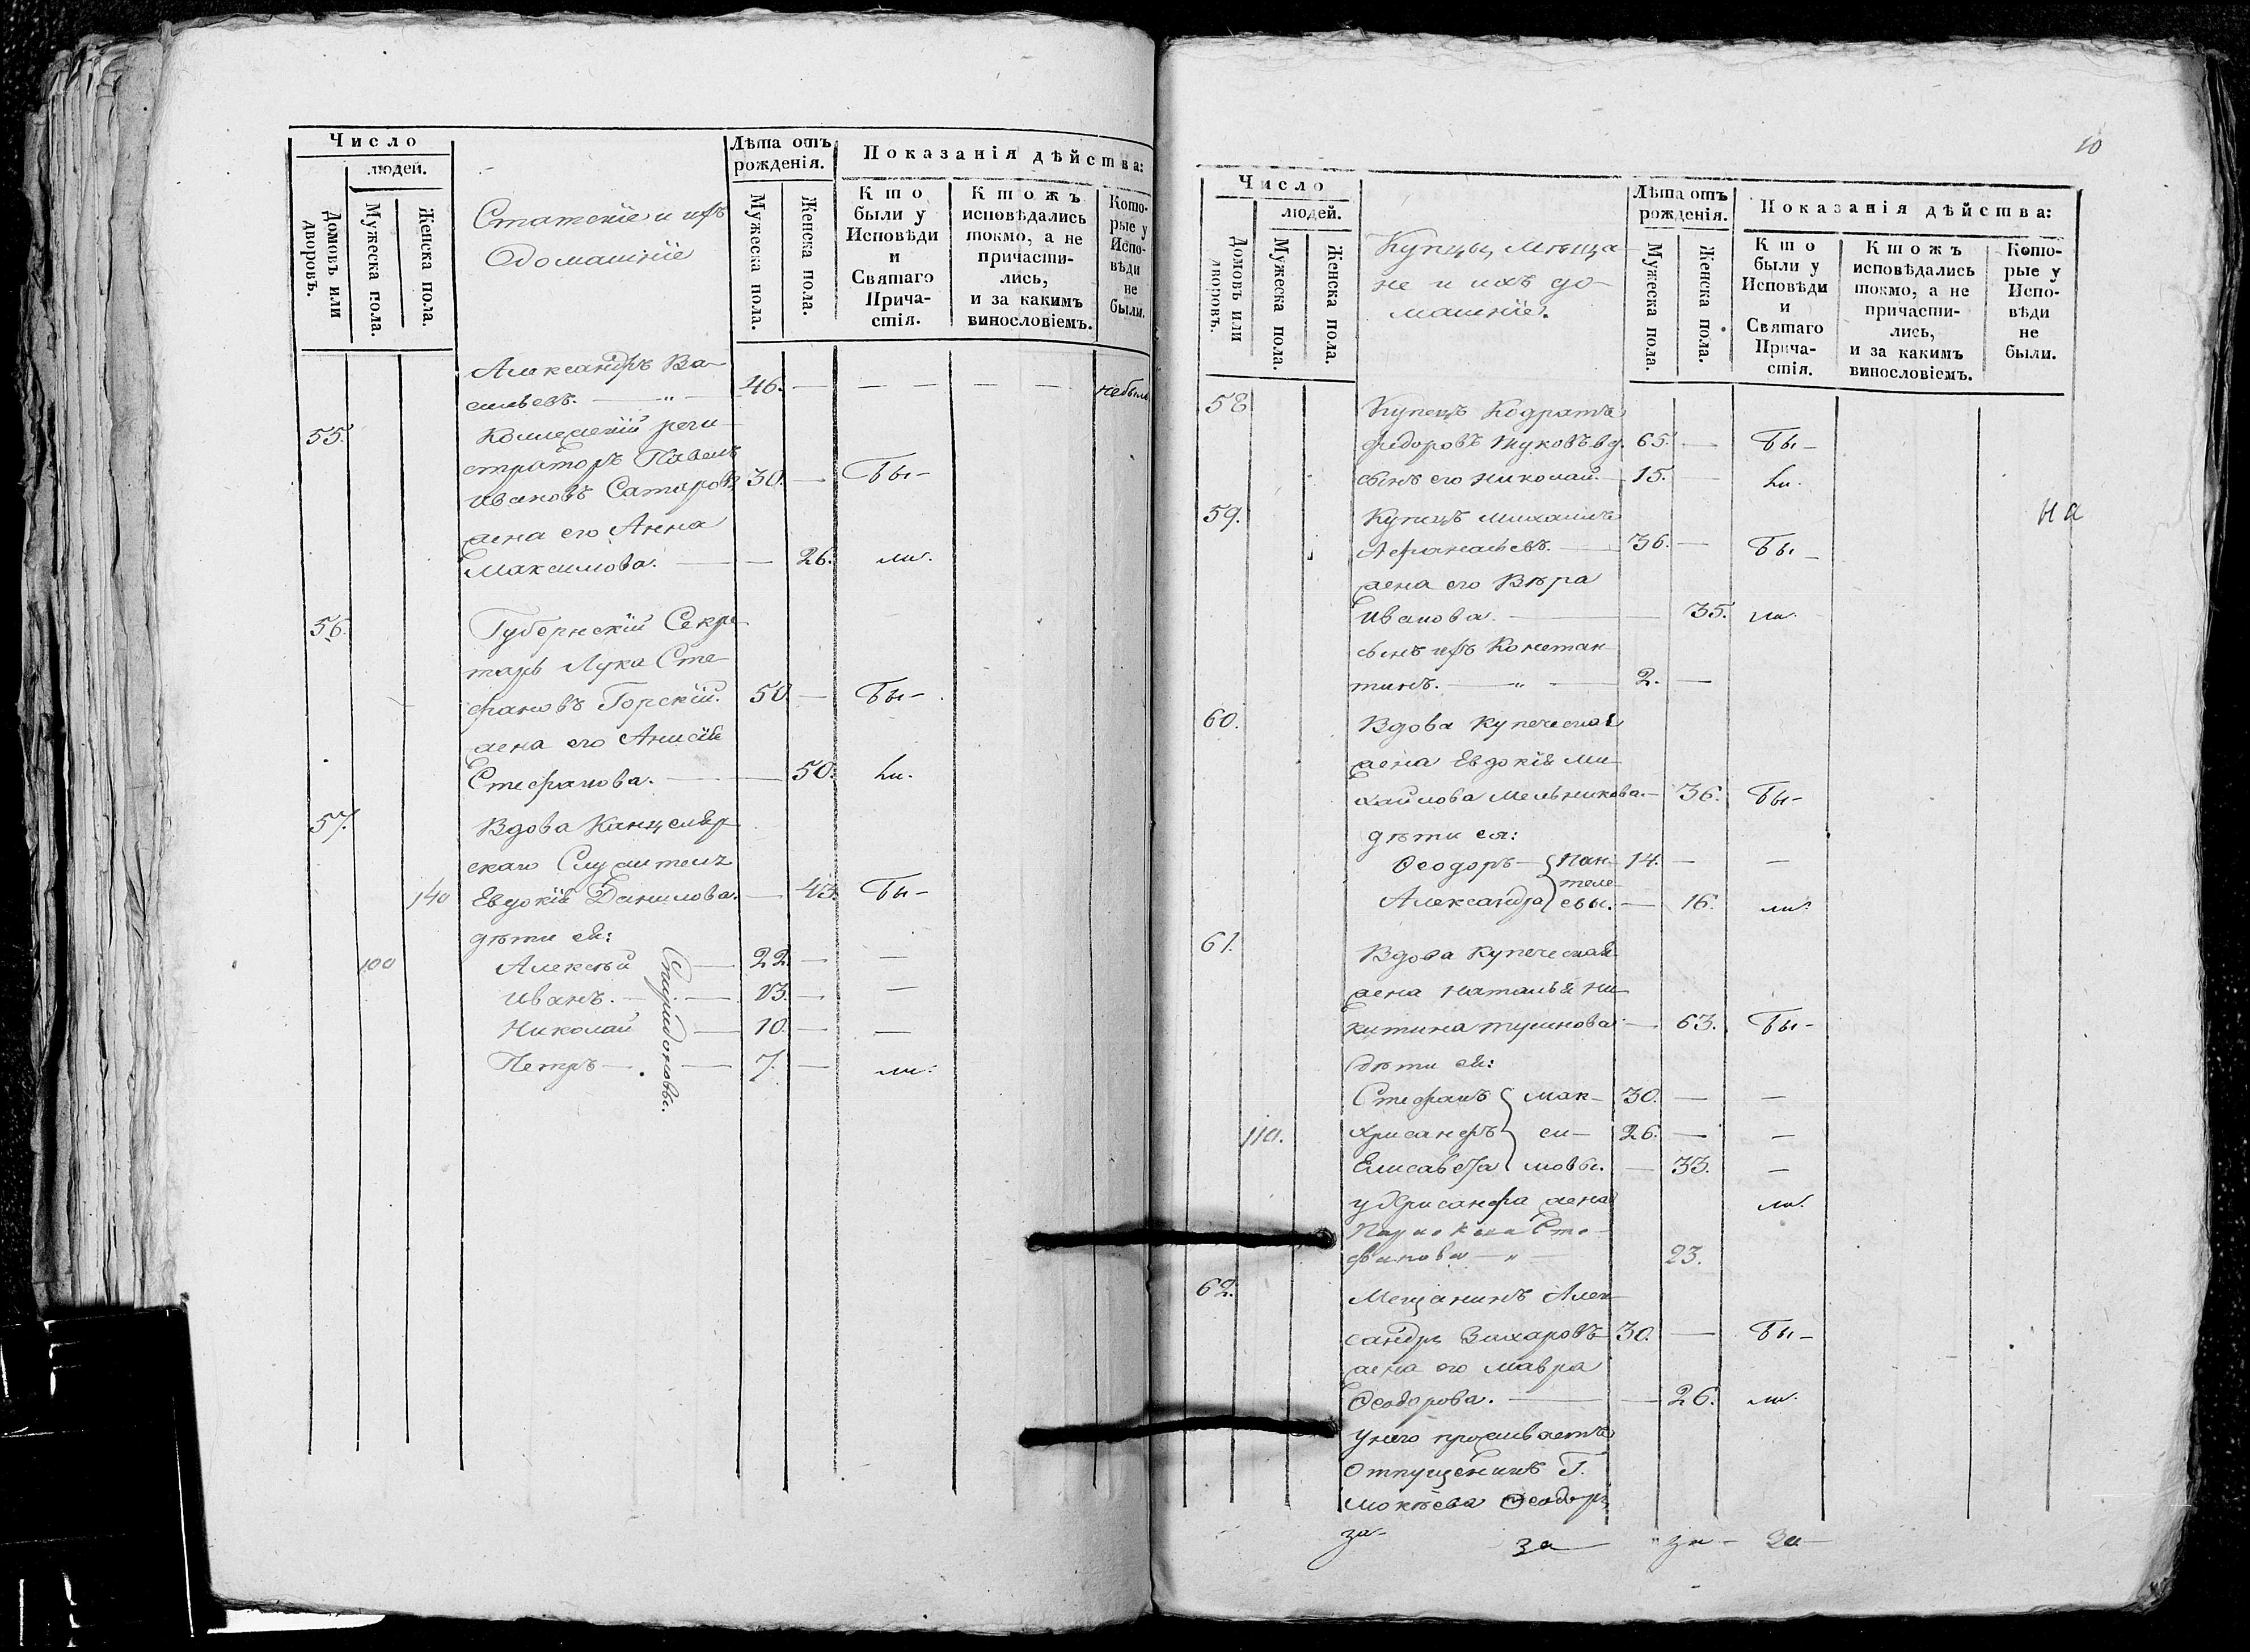 Число
людей.
Домовъ или дворовъ.
Мужеска пола.
Женска пола.
Статскіе и ихъ
домашніе
Лѣта отъ рожденія.
Мужеска пола.
Женска пола.
Показанія дѣйства:
Кто были у Исповѣди и Святаго Прича-стія.
Ктожъ исповѣдались токмо, а не причасти-лись, и за какимъ винословіемъ.
Кото-рые у Испо-вѣди не были.
Александръ Ва-
сильевъ. — " — 46. — — — — — небылъ
55. Коллежскій реги-
страторъ Павелъ
Ивановъ Сатаровъ 30. — Бы-
жена его Анна
Максимова. — — 26. ли.
56. Губернскій Секре-
тарь Лука Сте-
фановъ Горскій. 50. — Бы-
жена его Анисія
Стефанова. — — 50. ли.
57. Вдова Канцеляр-
скаго Служителя
140 Евдокія Данилова. — 43. Бы-
дѣти ея:
100 Алексѣй — 22. — —
Иванъ. — 13. — —
Николай — 10. — —
Петръ — 7. — ли.
Спиридоновы.
10
Число
людей.
Домовъ или дворовъ.
Мужеска пола.
Женска пола.
Купцы, Мѣща-
не и ихъ до-
машніе.
Лѣта отъ рожденія.
Мужеска пола.
Женска пола.
Показанія дѣйства:
Кто были у Исповѣди и Святаго Прича-стія.
Ктожъ исповѣдались токмо, а не причасти-лись, и за какимъ винословіемъ.
Кото-рые у Испо-вѣди не были.
58 Купецъ Кодратъ
Федоровъ Жуковъ вд. 65. — Бы-
сынъ его Николай. — 15. — ли.
59. Купецъ Михаилъ
на
Афанасьевъ. — 36. — Бы-
жена его Вѣра
Иванова. — — 35. ли.
сынъ ихъ Констан-
тинъ. — " — 2. —
60. Вдова купеческая
жена Евдокія Ми-
хайлова Мельникова. — 36. Бы-
дѣти ея:
Ѳеодоръ — Пан- 14. — —
теле-
Александра евы. — 16. ли.
61. Вдова купеческая
жена Наталья Ни-
китина — 63. Бы-
дѣти ея:
Стефанъ мак- 30. — —
110. Хрисанфъ си- 26. — —
Елисавета мовы. — 33. —
у Хрисанфа жена ли.
Параскева Сте-
фанова — " — 23.
62. Мещанинъ Алек-
сандръ Захаровъ 30. — Бы-
жена его Мавра
Ѳеодорова. — — 26. ли.
у него проживаетъ
Отпущеникъ Г.
Мокѣева Ѳеодоръ
за- за " за- за-